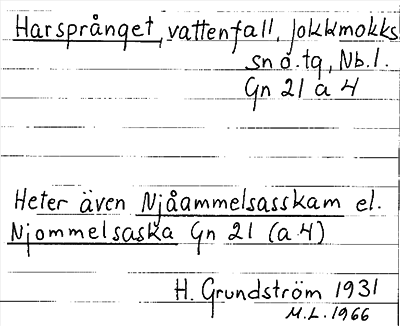 Harsprånget, vattenfall, Jokkmokks
sn o. tg, Nb.l.
Gn 21 a 4
Heter även Njåammelsasskam el.
Njommelsaska Gn 21 (a 4)
H. Grundström 1931
M.L. 1966